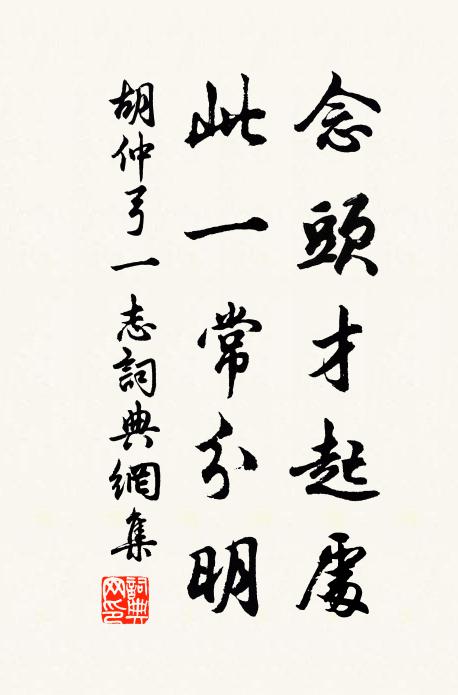 念頭才起處
此一常分明
胡仲弓一志詞典網集
詞典網印